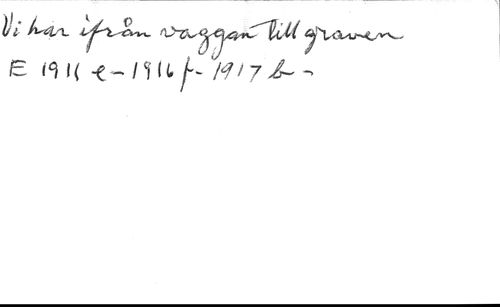 Vi har ifrån vaggan till graven
E 1916 e - 1916 f - 1917 b -